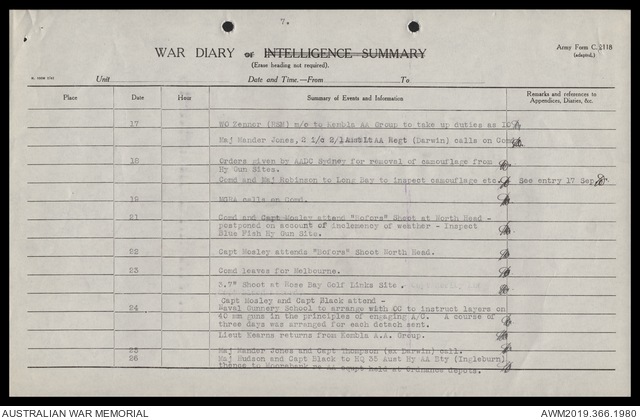 7.
Army Form C. 2118
(adapted.)
WAR DIARY or INTELLIGENCE SUMMARY
(Erase heading not required).
Unit
Date and Time.—From To
Place Date Hour Summary of Events and Information Remarks and references to
Appendices, Diaries, &c.
17 WO Zennor (RSM) m/c to Kembla AA Group to take up duties as
Maj Mander Jones, 2 i/c 2/1 Aust Lt AA Regt (Darwin) calls on Comd
18 Orders given by AADC Sydney for removal of camouflage from
Hy Gun Sites.
Comd and Maj Robinson to Long Bay to inspect camouflage etc. See entry 17 Sep
19 calls on Comd.
21 Comd and Capt Mosley attend "Bofors" Shoot at North Head -
postponed on account of inclemency of weather - Inspect
Blue Fish Hy Gun Site.
22 Capt Mosley attends "Bofors" Shoot North Head.
23 Comd leaves for Melbourne.
3.7" Shoot at Rose Bay Golf Links Site.
Capt Mosley and Capt Black attend -
24 Naval Gunnery School to arrange with OC to instruct layers on
40 mm guns in the principles of engaging A/C. A course of
three days was arranged for each detach sent.
Lieut Kearns returns from Kembla A.A. Group.
25 Maj Mander Jones and Capt Thompson (ex Darwin) call.
26 Maj Hudson and Capt Black to HQ 35 Aust Hy AA Bty (Ingleburn)
thence to Moorebank re AA equpt held at Ordnance Depots.
AUSTRALIAN WAR MEMORIAL
AWM2019.366.1980